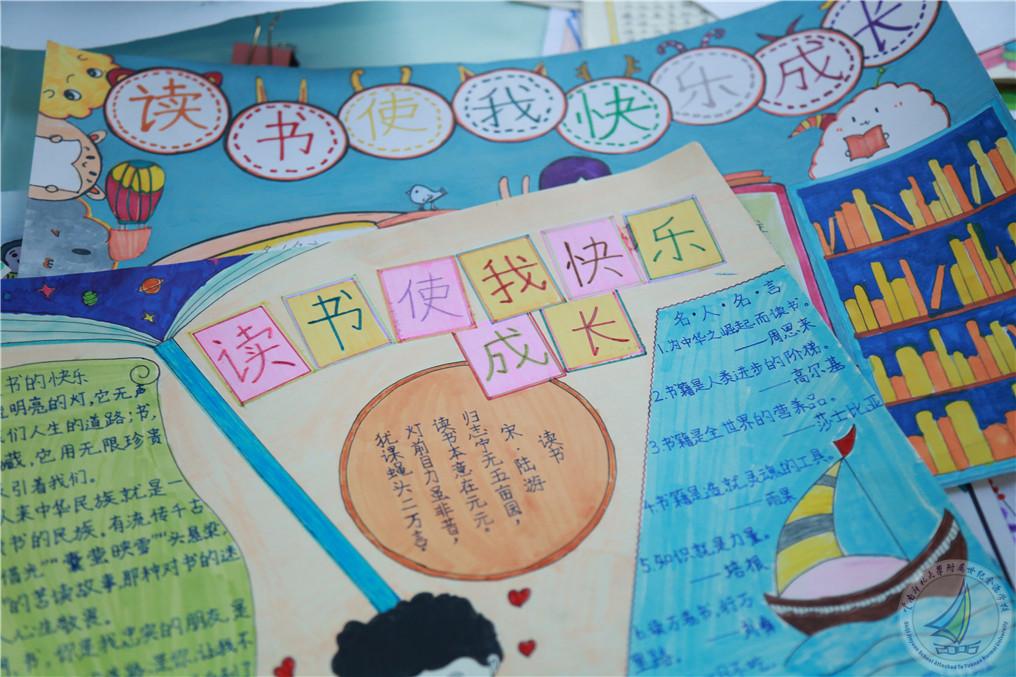 读书使我快乐成长
读书使我快乐
成长
书的快乐
明亮的灯,它无声
们人生的道路;书,
藏,它用无限珍贵
引着我们。
来中华民族就是一
书的民族。有流传千古
借光”“囊萤映雪”“头悬梁,
的苦读故事,那种对书的迷
人心生敬畏。
书,你是我忠实的朋友,是
是你,让我不
读书
宋·陆游
归志宁无五亩园,
读书本意在元元。
灯前目力虽非昔,
犹课蝇头二万言。
名·人·名·言
1.为中华之崛起而读书。
——周恩来
2.书籍是人类进步的阶梯。
——高尔基
3.书籍是全世界的营养品。
——莎士比亚
4.书籍是造就灵魂的工具。
——雨果
5.知识就是力量。
——培根
6.读万卷书,行万
里路。
——刘彝